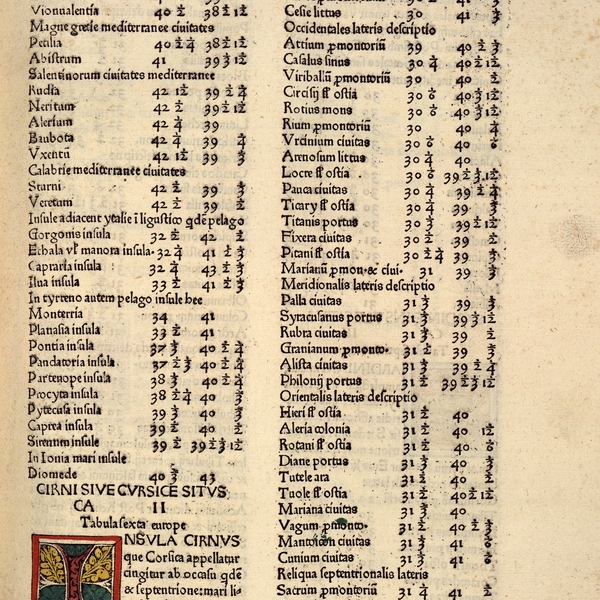 Vionvalentia 40 ½ 38 ½ 1/2
Magne gretie mediterranee ciuitates
Petilia 40 ½ ¼ 38 ½ 1/2
Abistrum 41 39 ⅓ 1/2
Salentinorum ciuitates mediterranee
Rudia 42 1/2 39 ½ ¼
Neritum 42 ½ 39 ½ 1/2
Aletium 42 ¼ 39
Baubota 42 ¼ 39 ¼
Vxentū 42 1/2 39 ⅓
Calabrie mediterranee ciuitates
Starni 42 ½ 39 ⅔
Veretum 42 ½ 39 ½
Insule adiacent ytalie ī ligustico qdē pelago
Gorgonis insula 32 ½ 42 ½
Ethala vł manora insula 32 ¼ 41 ½ ⅓
Capraria insula 32 ¼ 43 ½ ⅓
Ilua insula 33 ½ 41 ½ ⅓
In tyrreno autem pelago insule hee
Monterria 34 41
Planasia insula 33 ½ 41
Pontia insula 37 ⅓ 40 ½ ¼
Pandatoria insula 37 ½ ⅓ 40 ½ ¼
Partenope insula 38 ⅓ 40 ½ ¼
Procyta insula 38 ½ ¼ 40 ⅓
Pytecusa insula 39 ⅓ 40 ⅓
Caprea insula 39 ½ 40 ½
Sirennen insule 39 ½ 39 ½ ⅓ 1/2
In Ionia mari insule
Diomede 40 ⅔ 43
CIRNI SIVE CVRSICE SITVS
CA II
Tabula sexta europe
INSVLA CIRNVS
que Corsica appellatur
cingitur ab occasu qdē
& septentrione: mari li-
Cesie littus 31 40 ⅔
Occidentales lateris descriptio
Attium ꝓmontoriū 39 40 ½ ⅔
Casalus sinus 30 ¼ 40 ½ 1/2
Viriballū ꝓmontoriū 30 40 ½
Circisij fł ostia 30 6 40 ⅓ 1/2
Rotius mons 30 6 40 ⅓ 1/2
Rium ꝓmontoriū 30 40 ¼
Vrcinium ciuitas 30 6 40 6
Arenosum littus 30 ¼ 40
Locre fł ostia 30 6 39 ½ ⅓ 1/2
Pauca ciuitas 30 ¼ 39 ½ ¼
Ticary fł ostia 30 ¼ 39 ⅔
Titanis portus 30 ⅓ 39 ½ 1/2
Fixera ciuitas 30 ½ 39 ½
Pitani fł ostia 30 ½ ¼ 39 ½
Marianū ꝓmon. & ciui. 31 39 ⅓
Meridionalis lateris descriptio
Palla ciuitas 31 ⅓ 39 ⅓
Syracusanus portus 31 ⅓ 39 ⅓ 1/2
Rubra ciuitas 31 ⅓ 39 ½
Granianum ꝓmonto. 31 ½ 39 ⅔
Alista ciuitas 31 ⅓ 39 ½ ¼
Philonij portus 31 ½ 39 ½ ⅓ 1/2
Orientalis lateris descriptio
Hieri fł ostia 31 ½ 40
Aleria colonia 31 ½ 40 1/2
Rotani fł ostia 31 ½ 40 6
Diane portus 31 ⅓ 40 ⅓
Tutele ara 31 ½ 40 ½
Tuole fł ostia 31 ½ 40 ½ 1/2
Mariana ciuitas 31 ⅓ 40 ⅔
Vagum ꝓmonto. 31 ½ 40 ½ ¼
Mantoicon ciuitas 31 ⅓ 41 6
Cunium ciuitas 31 ⅓ 41 6
Reliqua septentrionalis lateris
Sacrum ꝓmontoriū 31 ¼ 41 ½